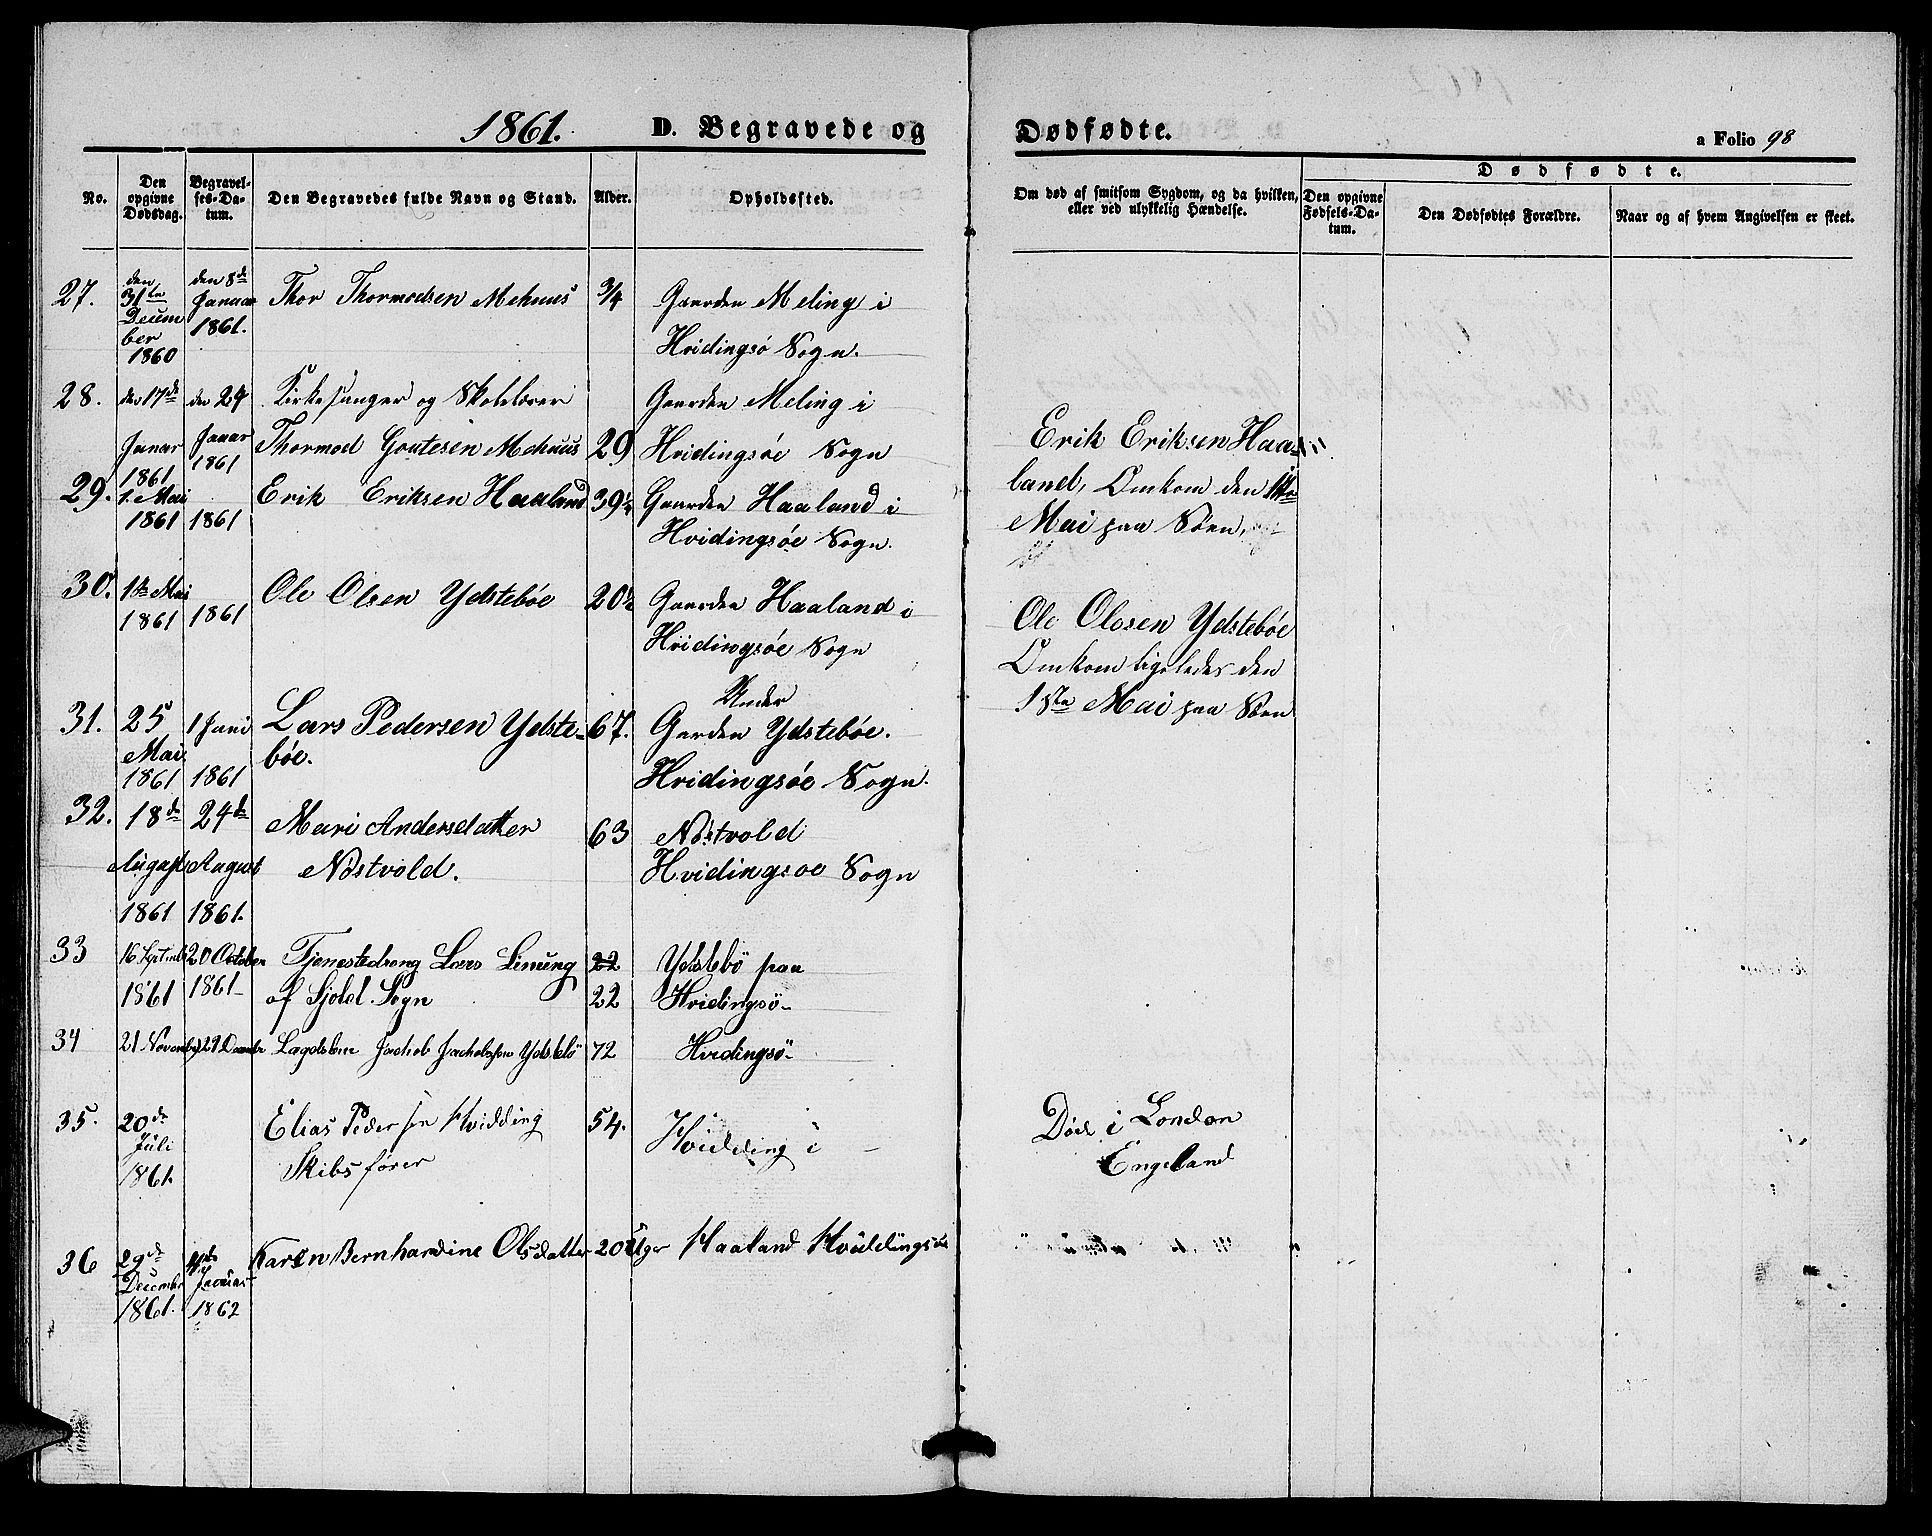 1861. D. Begravede og Dødfødte.
a Folio 98
No.
Den opgivne Dødsdag.
Begravelses-Datum.
Den Begravedes fulde Navn og Stand.
Alder.
Opholdssted.
Om død af smitsom Sygdom, og da hvilken, eller ved ulykkelig Hændelse.
Dødfødte.
Den opgivne Fødsels-Datum.
Den Dødfødtes Forældre.
Naar og af hvem Angivelsen er skeet.
27. den 31te December 1860
den 8de Januar 1861.
Thor Thormodsen Mehuus
3/4
Gaarden Meling i
Hvidingsö Sogn.
28. den 17de Januar 1861
den 24 Januar 1861
Kirkesanger og Skolelærer
Thormod Goutesen Mehuus
29
Gaarden Meling i
Hvidingsöe Sogn
29. 1. Mai 1861
1861
Erik Eriksen Haaland
39½
Gaarden Haaland i
Hvidingsöe Sogn.
Erik Eriksen Haa-
land, Omkom den 1ste
Mai paa Söen,
30. 1ste Mai 1861
1861
Ole Olsen Ydsteböe
20½
Gaarden Haaland i
Hvidingsöe Sogn
Ole Olosen Ydsteböe
Omkom ligeledes den
1ste Mai paa Söen
31. 25 Mai 1861
1 Juni 1861
Lars Pedersen Ydste-
böe.
67.
Under
Garden Ydsteböe.
Hvidingsöe Sogn.
32. 18de August 1861
24de August 1861.
Mari Andersdatter
Nöstvold.
63
Nöstvold
Hvidingsoe Sogn
33 16 Septembr 1861
20 October 1861-
Tjenestedreng Lars
af Sjold Sogn
22
22
Ydstebö paa
Hvidingsö-
34 21 Novembr
Jacob Jacobsen Ydstebö
72
Hvidingsö-
35. 20de Juli 1861.
Elias Pedersen Hvidding
Skibsfører
54.
Hvidding i
Död i London
Engeland
36 29de December 1861.
4de Januar 1862
Karen Bernhardine Olsdatter
20 Uger
Haaland Hviddingsöe